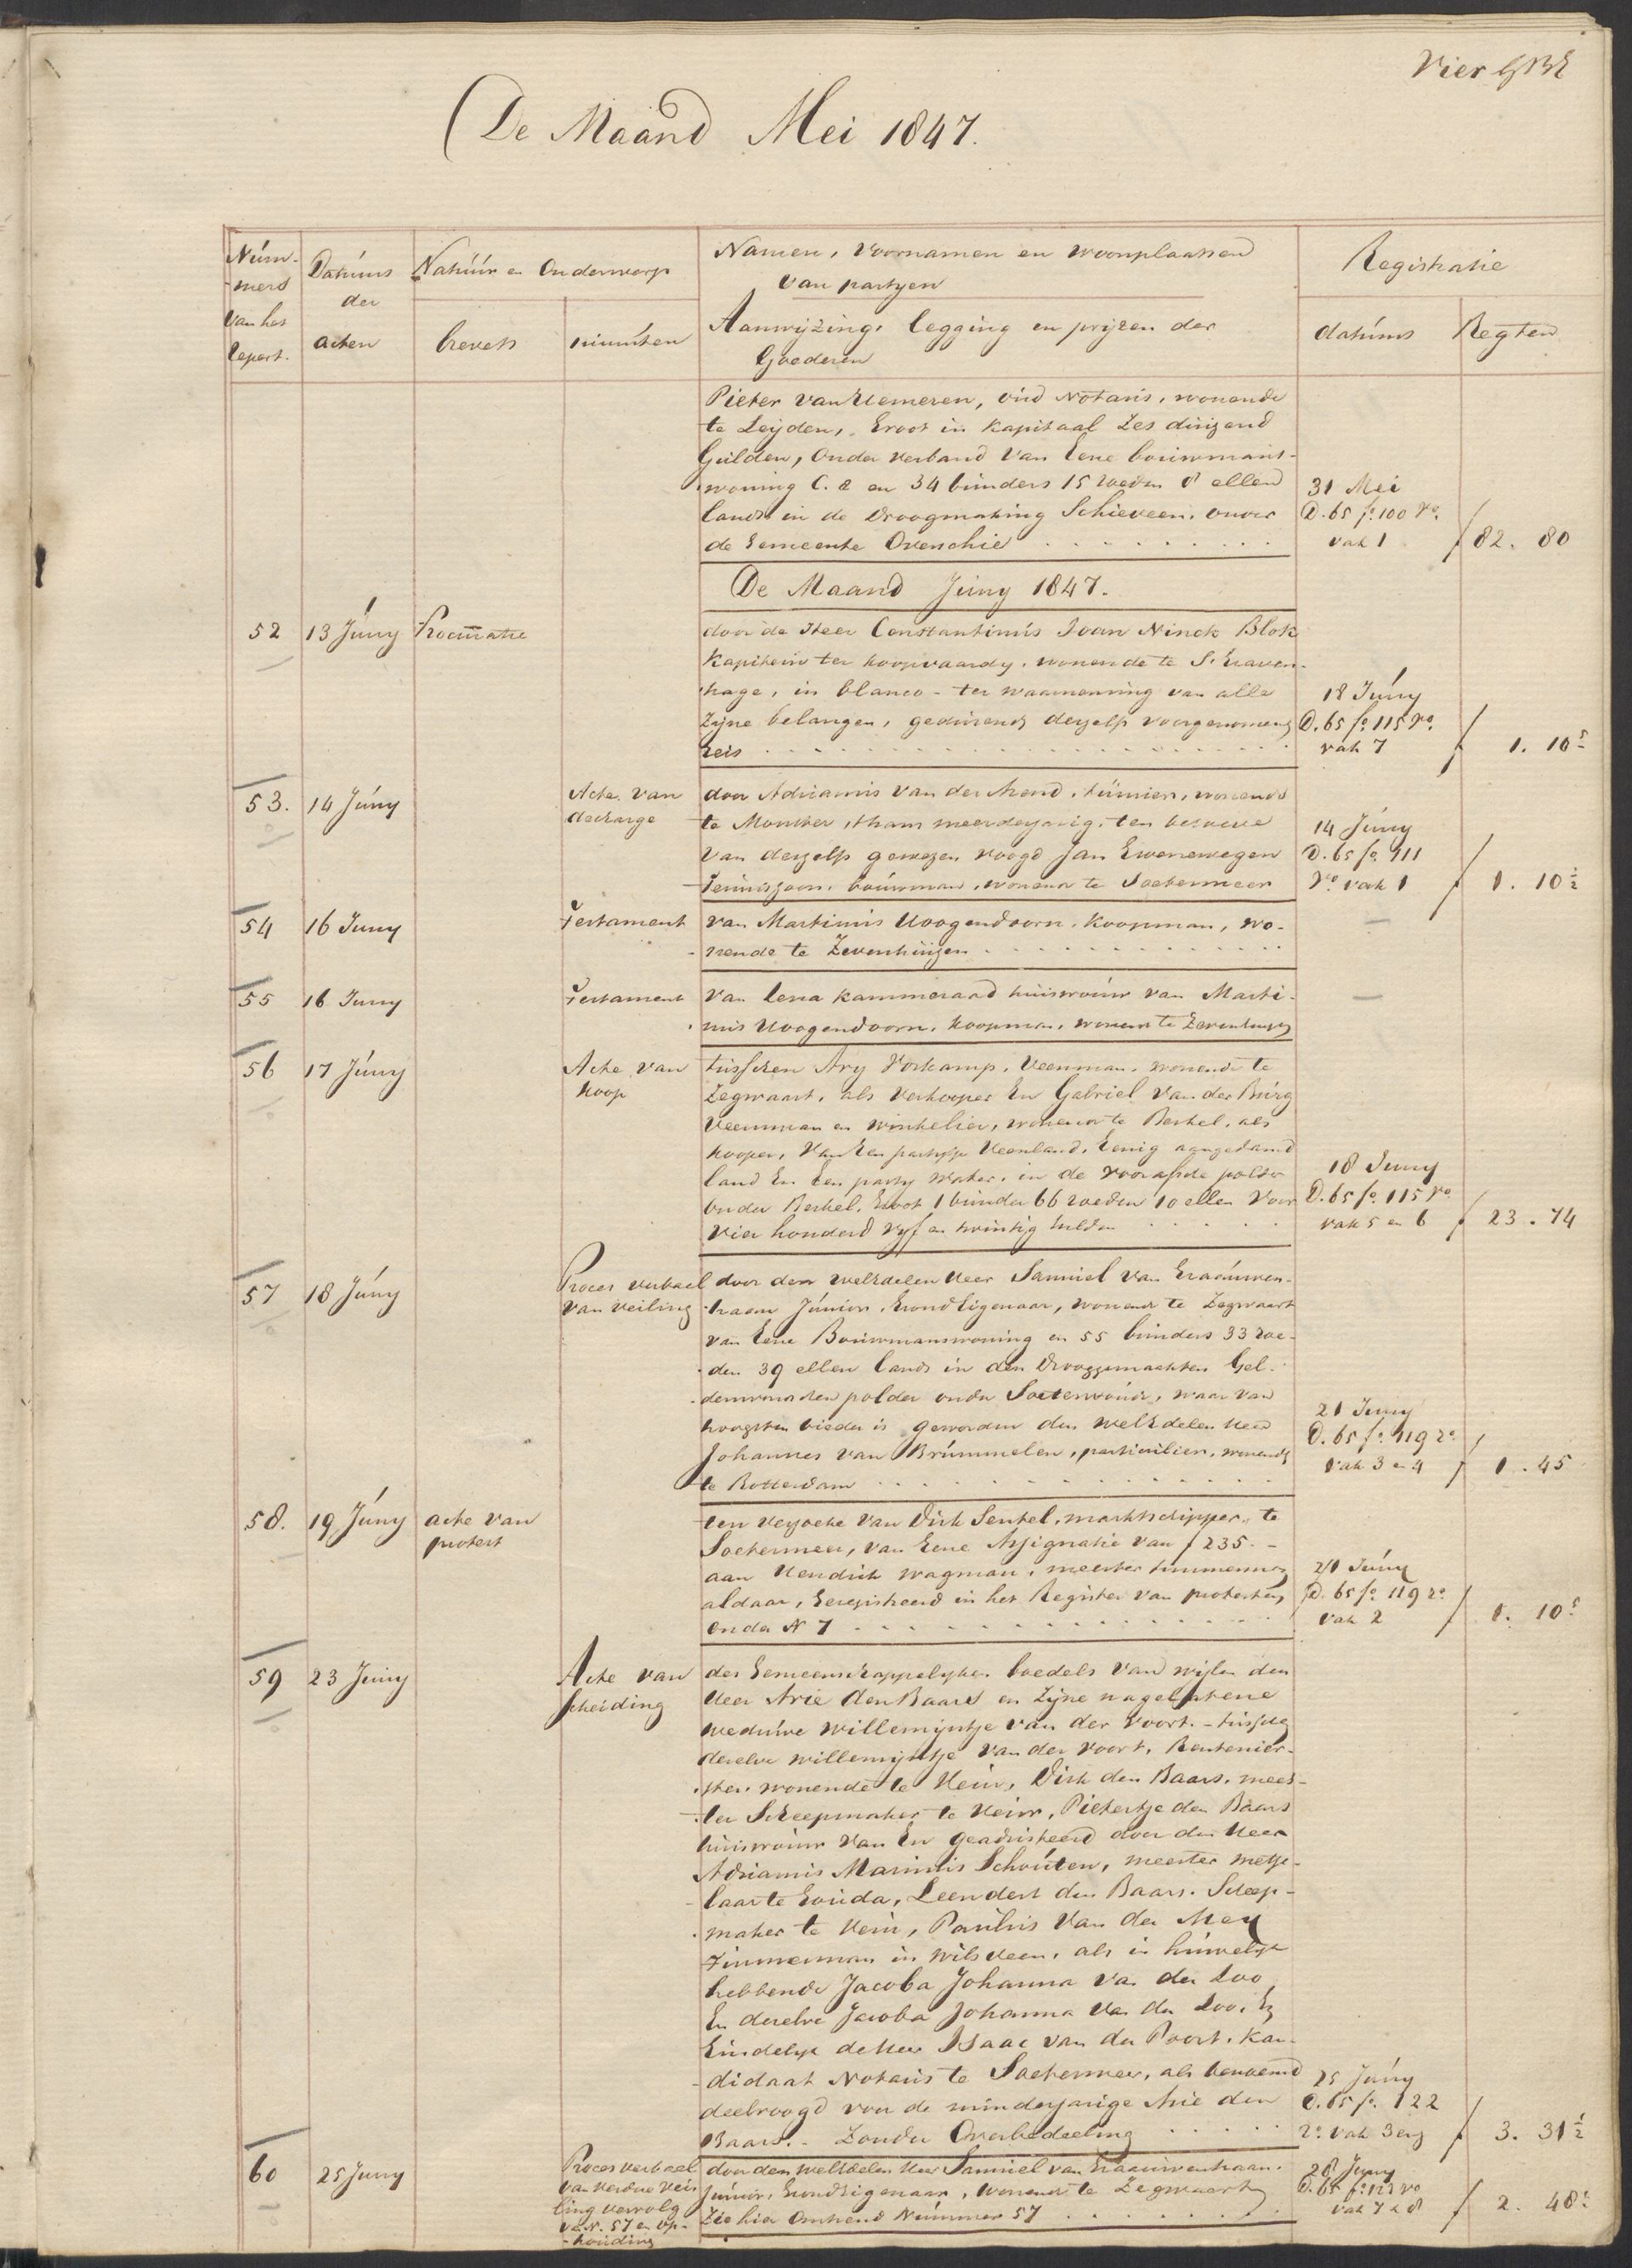 Vier
De Maand Mei 1847.
Núm-
mers
van het
Repert.
Datúms
der
acten
Natúúr en Onderwerp
brevets
minúten
Namen, Voornamen en woonplaatsen
van partyen
Aanwyzing, legging en pryzen der
Goederen
Registratie
datúms
Regten
Pieter van Hemeren, oúd Notaris, wonende
te Leyden, Groot in Kapitaal Zes dúizend
Gúlden, Onder verband van Eene boúwmans-
woning C. 2 en 34 búnders 15 roeden 8 ellen
land in de Droogmaking Schieveen, onder
de Gemeente Overschie
31 Mei
D. 65 fo. 100 Vo.
vak 1
f 82. 80
De Maand Júny 1847.
52
13 Júny
Procúratie
door de Heer Constantinús Joan Ninck Blok
Kapitein ter koopvaardy, wonende te S. Graven-
hage, in blanco - ter waarneming van alle
Zyne belangen, gedúrende deszelfs voorgenomen
reis
18 Júny
D. 65 fo. 115 Vo.
vak 7
f 1. 10 5
53.
14 Júny
Acte van
decharge
door Adrianús van der Arend, túinier, wonende
te Monster, thans meerderjarig, ten behoeve
van deszelfs gewezen voogd Jan Groenewegen
Teúniszoon, boúwman, wonende te Soetermeer
14 Júny
D. 65 fo. 111
Vo. vak 1
f 1. 10 ½
54
16 Juny
Testament
van Martinús Hoogendoorn, Koopman, wo-
nende te Zevenhúizen
—
55
16 Juny
Testament
van Lena Kammeraad húisvroúw van Marti-
nús Hoogendoorn, Koopman, wonende te Zevenhuizen
—
56
17 Júny
Acte van
koop
tússchen Ary Vorkamp, Veenman, wonende te
Zegwaart, als Verkooper En Gabriel van der Búrg
Veenman en winkelier, wonende te Berkel, als
kooper, Van Een partytje Veenland, Eenig aangedamd
land En Een party Water, in de Voorafsche polder
onder Berkel, Groot 1 búnder 66 roeden 10 ellen Voor
Vier honderd vyf en twintig Gulden
18 Juny
D. 65 fo. 115 Vo
vak 5 en 6
f 23. 74
57
18 Júny
Proces verbael
van Veiling
door den welEdelen Heer Samúel van Graaúwen-
haan Júnior, GrondEigenaar, wonende te Zegwaart
van Eene Boúwmanswoning en 55 búnders 33 roe-
den 39 ellen land in den Drooggemaakten Gel-
denwaarden polder onder Soeterwoúde, waar van
hoogsten bieder is geworden den welEdelen Heer
Johannes van Brúmmelen, particúlier, wonende
te Rotterdam
21 Juny
D. 65 fo. 119 ro
vak 3 en 4
f 1. 45
58.
19 Júny
acte van
protest
ten verzoeke van Dirk Senkel, marktschipper, te
Soetermeer, van Eene Assignatie van f 235.-
aan Hendrik Wagman, meester timmerman
aldaar, Geregistreerd in het Register van protesten
onder N 7
21 Júny
D. 65 fo. 119 ro
vak 2
f 1. 10 5
59
23 Júny
Acte van
scheiding
des Gemeenschappelyken boedels van wylen den
Heer Arie den Baars en Zyne nagelatene
wedúwe Willemyntje van der Voort. - tússchen
dezelve Willemyntje van der Voort, Rentenier-
ster, wonende te                , Dirk den Baars, mees-
ter Scheepmaker te                , Pietertje den Baars
húisvroúw van En geadsisteerd door den Heer
Adrianús Marinús Schoúten, meester metse-
laar te Goúda, Leendert den Baars, Scheep-
maker te                , Paúlús van der Mey
Timmerman in Wilsveen, als in húwelyk
hebbende Jacoba Johanna van der Loo
En dezelve Jacoba Johanna van der Loo, En
Eindelyk de Heer Isaac van der Poort, Kan-
didaat Notaris te Soetermeer, als benoemd
deelvoogd voor de minderjarige Arie den
Baars. - Zonder Overbedeeling
25 Júny
D. 65 fo. 122
ro. vak 3 en
f 3. 31 ½
60
25 Juny
Proces verbael
van verdere vei
ling vervolg
van N. 57 en op-
houding
door den welEdelen Heer Samúel van Graaúwenhaan
Júnior, GrondEigenaar, wonende te Zegwaart
Zie hier omtrend Núimmer 57
28 Juny
D. 65 fo. 123 Vo
vak 7 & 8
f 2. 48 5